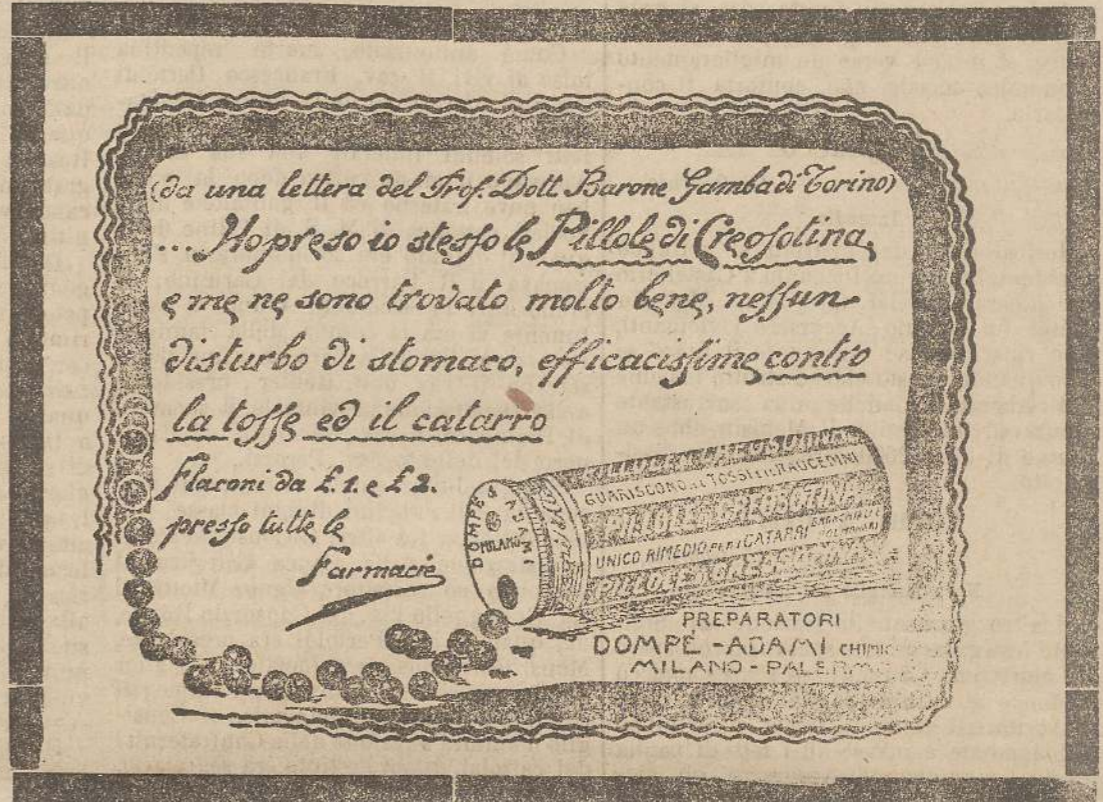 (da una lettera del Prof. Dott. Barone Gamba di Torino)
... Ho preso io stesso le Pillole di Creosotina,
e me ne sono trovato molto bene, nessun
disturbo di stomaco, efficacissime contro
la tosse ed il catarro
Flaconi da £.1. e £ 2.
presso tutte le
Farmacie
DOMPÉ & ADAMI
MILANO
PILLOLE DI CREOSOTINA
GUARISCONO LE TOSSI E LE RAUCEDINI
PILLOLE DI CREOSOTINA
UNICO RIMEDIO PER I CATARRI BRONCHIALI E POLMONARI
PILLOLE DI CREOSOTINA
PREPARATORI
DOMPÉ - ADAMI CHIMICI
MILANO - PALERMO